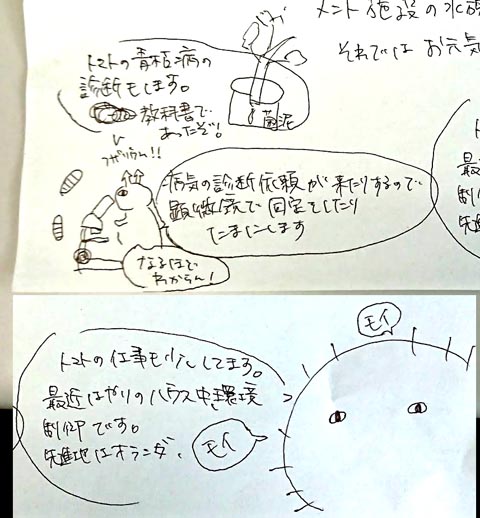 メント施設の水
それではお元気
トマトの青枯病の
診断もします。
教科書で
あったぞ!
菌泥
フザリウム!!
病気の診断依頼が来たりするので
顕微鏡で同定をしたり
たまにします
なるほど
わからん!
最
制
先進
モイ
トマトの仕事も少ししてます。
最近はやりのハウス中環境
制御です。
先進地はオランダ。
モイ